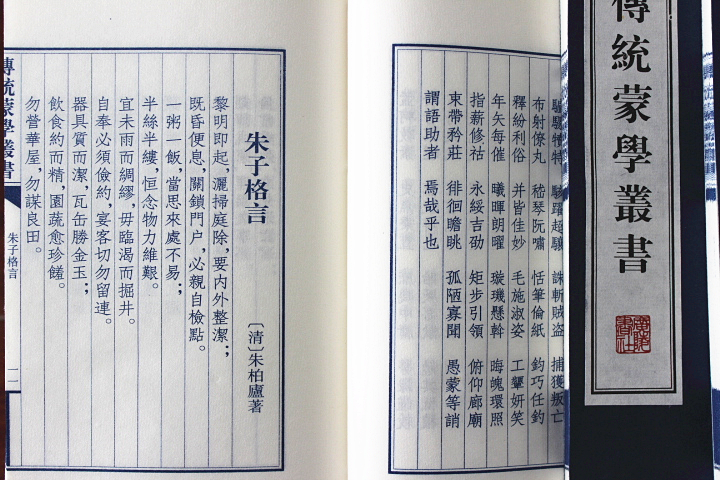 傳統蒙學叢書
驢騾犢特 駭躍超驤 誅斬賊盜 捕獲叛亡
布射僚丸 嵇琴阮嘯 恬筆倫紙 鈞巧任釣
釋紛利俗 并皆佳妙 毛施淑姿 工顰妍笑
年矢每催 曦暉朗曜 璇璣懸斡 晦魄環照
指薪修祜 永綏吉劭 矩步引領 俯仰廊廟
束帶矜莊 徘徊瞻眺 孤陋寡聞 愚蒙等誚
謂語助者 焉哉乎也
朱子格言
〔清〕朱柏廬著
黎明即起，灑掃庭除，要内外整潔；
既昏便息，關鎖門户，必親自檢點。
一粥一飯，當思來處不易；
半絲半縷，恒念物力維艱。
宜未雨而綢繆，毋臨渴而掘井。
自奉必須儉約，宴客切勿留連。
器具質而潔，瓦缶勝金玉；
飲食約而精，園蔬愈珍饈。
勿營華屋，勿謀良田。
傳統蒙學叢書
朱子格言
一一